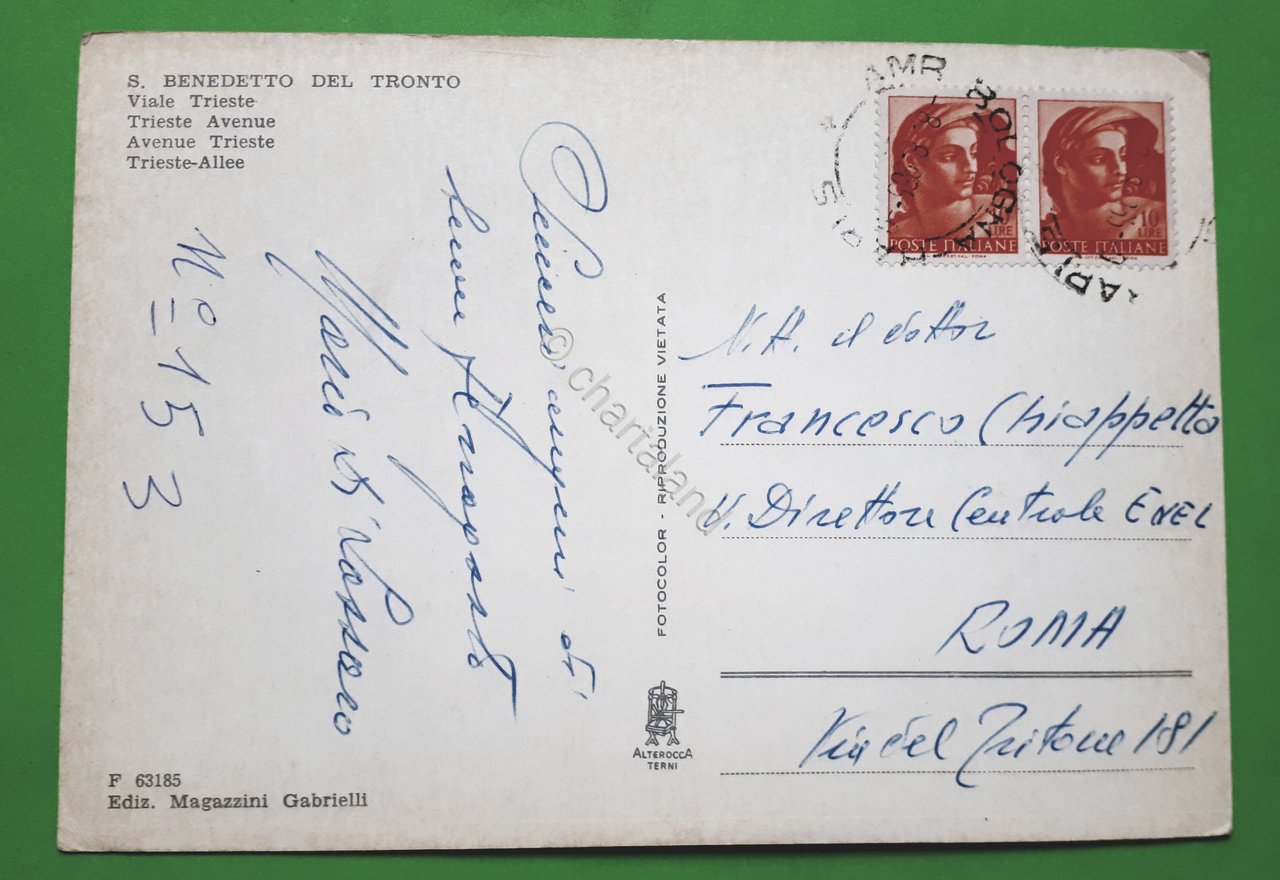 S. BENEDETTO DEL TRONTO
Viale Trieste
Trieste Avenue
Avenue Trieste
Trieste-Allee
Nº 15
3
Sinceri auguri di
buon Ferragosto
F 63185
Ediz. Magazzini Gabrielli
FOTOCOLOR - RIPRODUZIONE VIETATA
ALTEROCCA
TERNI
© chartaland
BOLOGNA
10
LIRE
POSTE ITALIANE
LIRE
POSTE ITALIANE
N.H. il dottor
Francesco Chiappetta
V. Direttore Centrale ENEL
ROMA
Via del Tritone 181